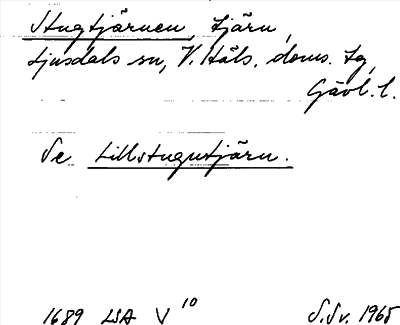 Stugtjärnen, tjärn,
Ljusdals sn, V. Häls. doms. tg,
Gävl. l.
Se Lillstugutjärn.
1689 LSA V 10 S.Sv. 1965